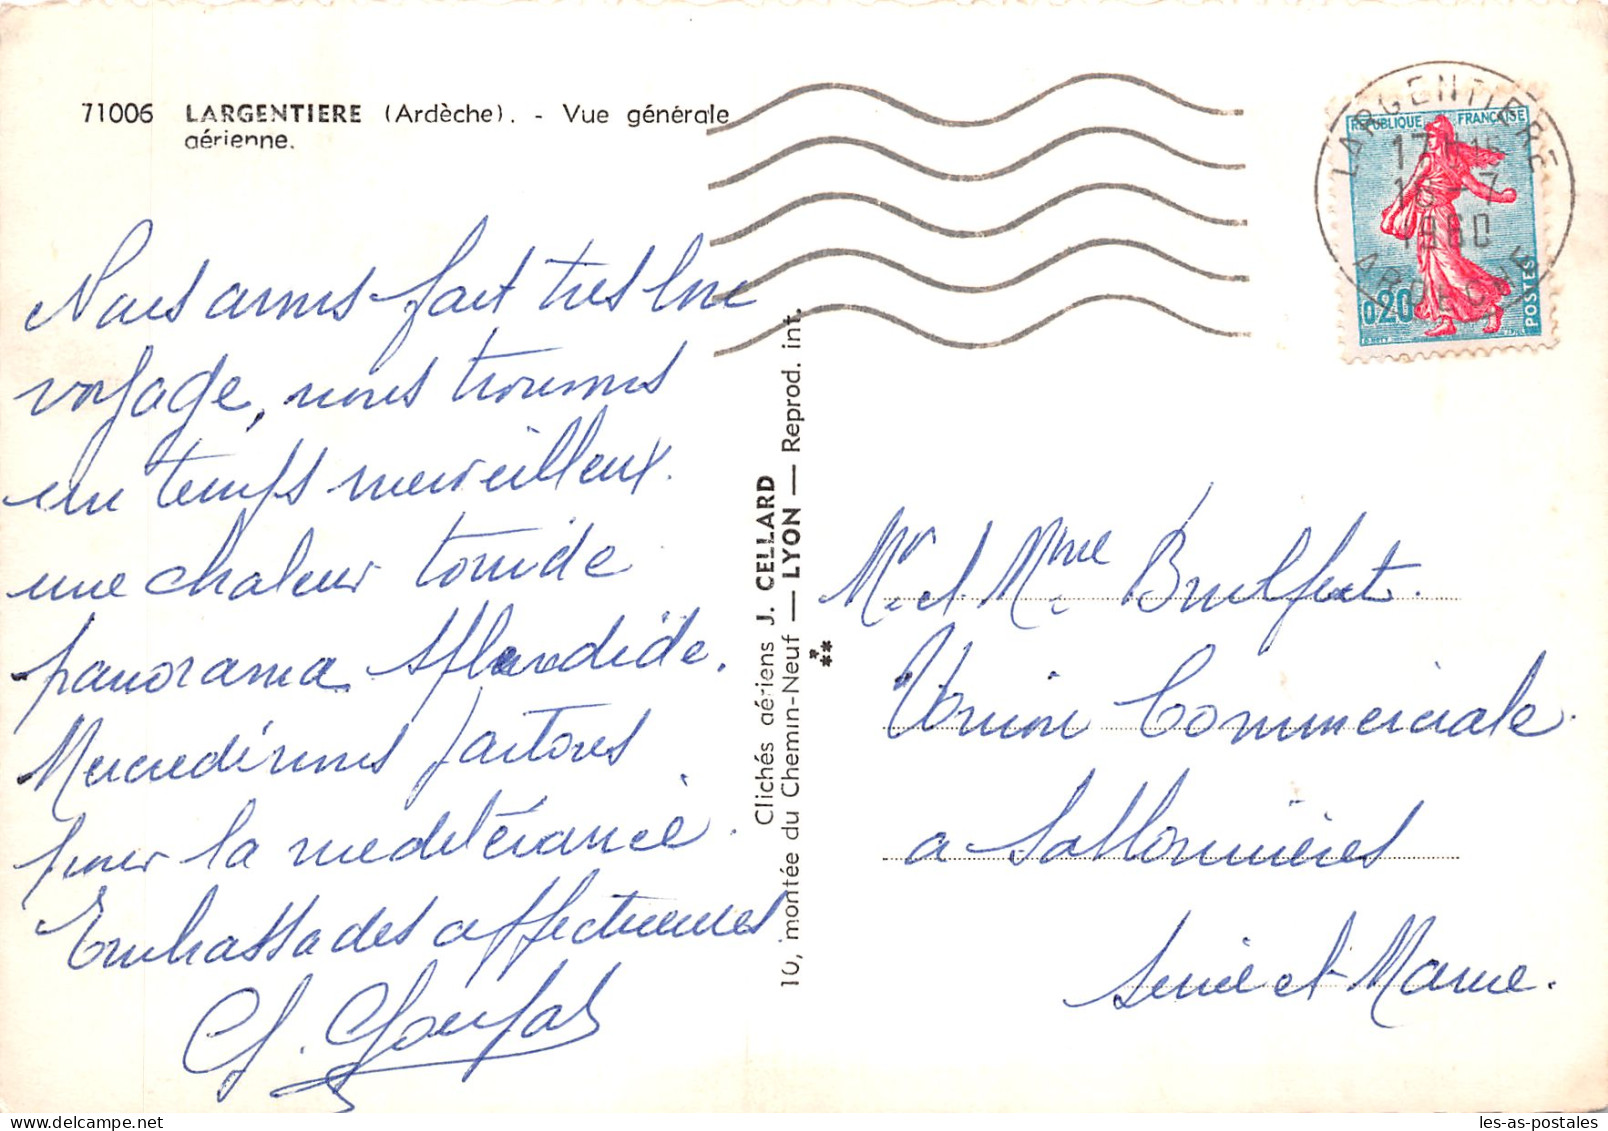 71006 LARGENTIERE (Ardèche). - Vue générale
aérienne.
Nous avons fait très bon
voyage, nous trouvons
un temps merveilleux.
une chaleur torride
panorama splendide.
Mercredi nous partons
pour la mediterannée.
Embrassades affectueuses
Clichés aériens J. CELLARD
10, montée du Chemin-Neuf — LYON — Reprod. int.
LARGENTIERE
17H15
16-7
1960
ARDECHE
REPUBLIQUE FRANÇAISE
0,20
POSTES
Mr et Mme
Union Commerciale
a Sablonnières
Seine et Marne.
les-as-postales